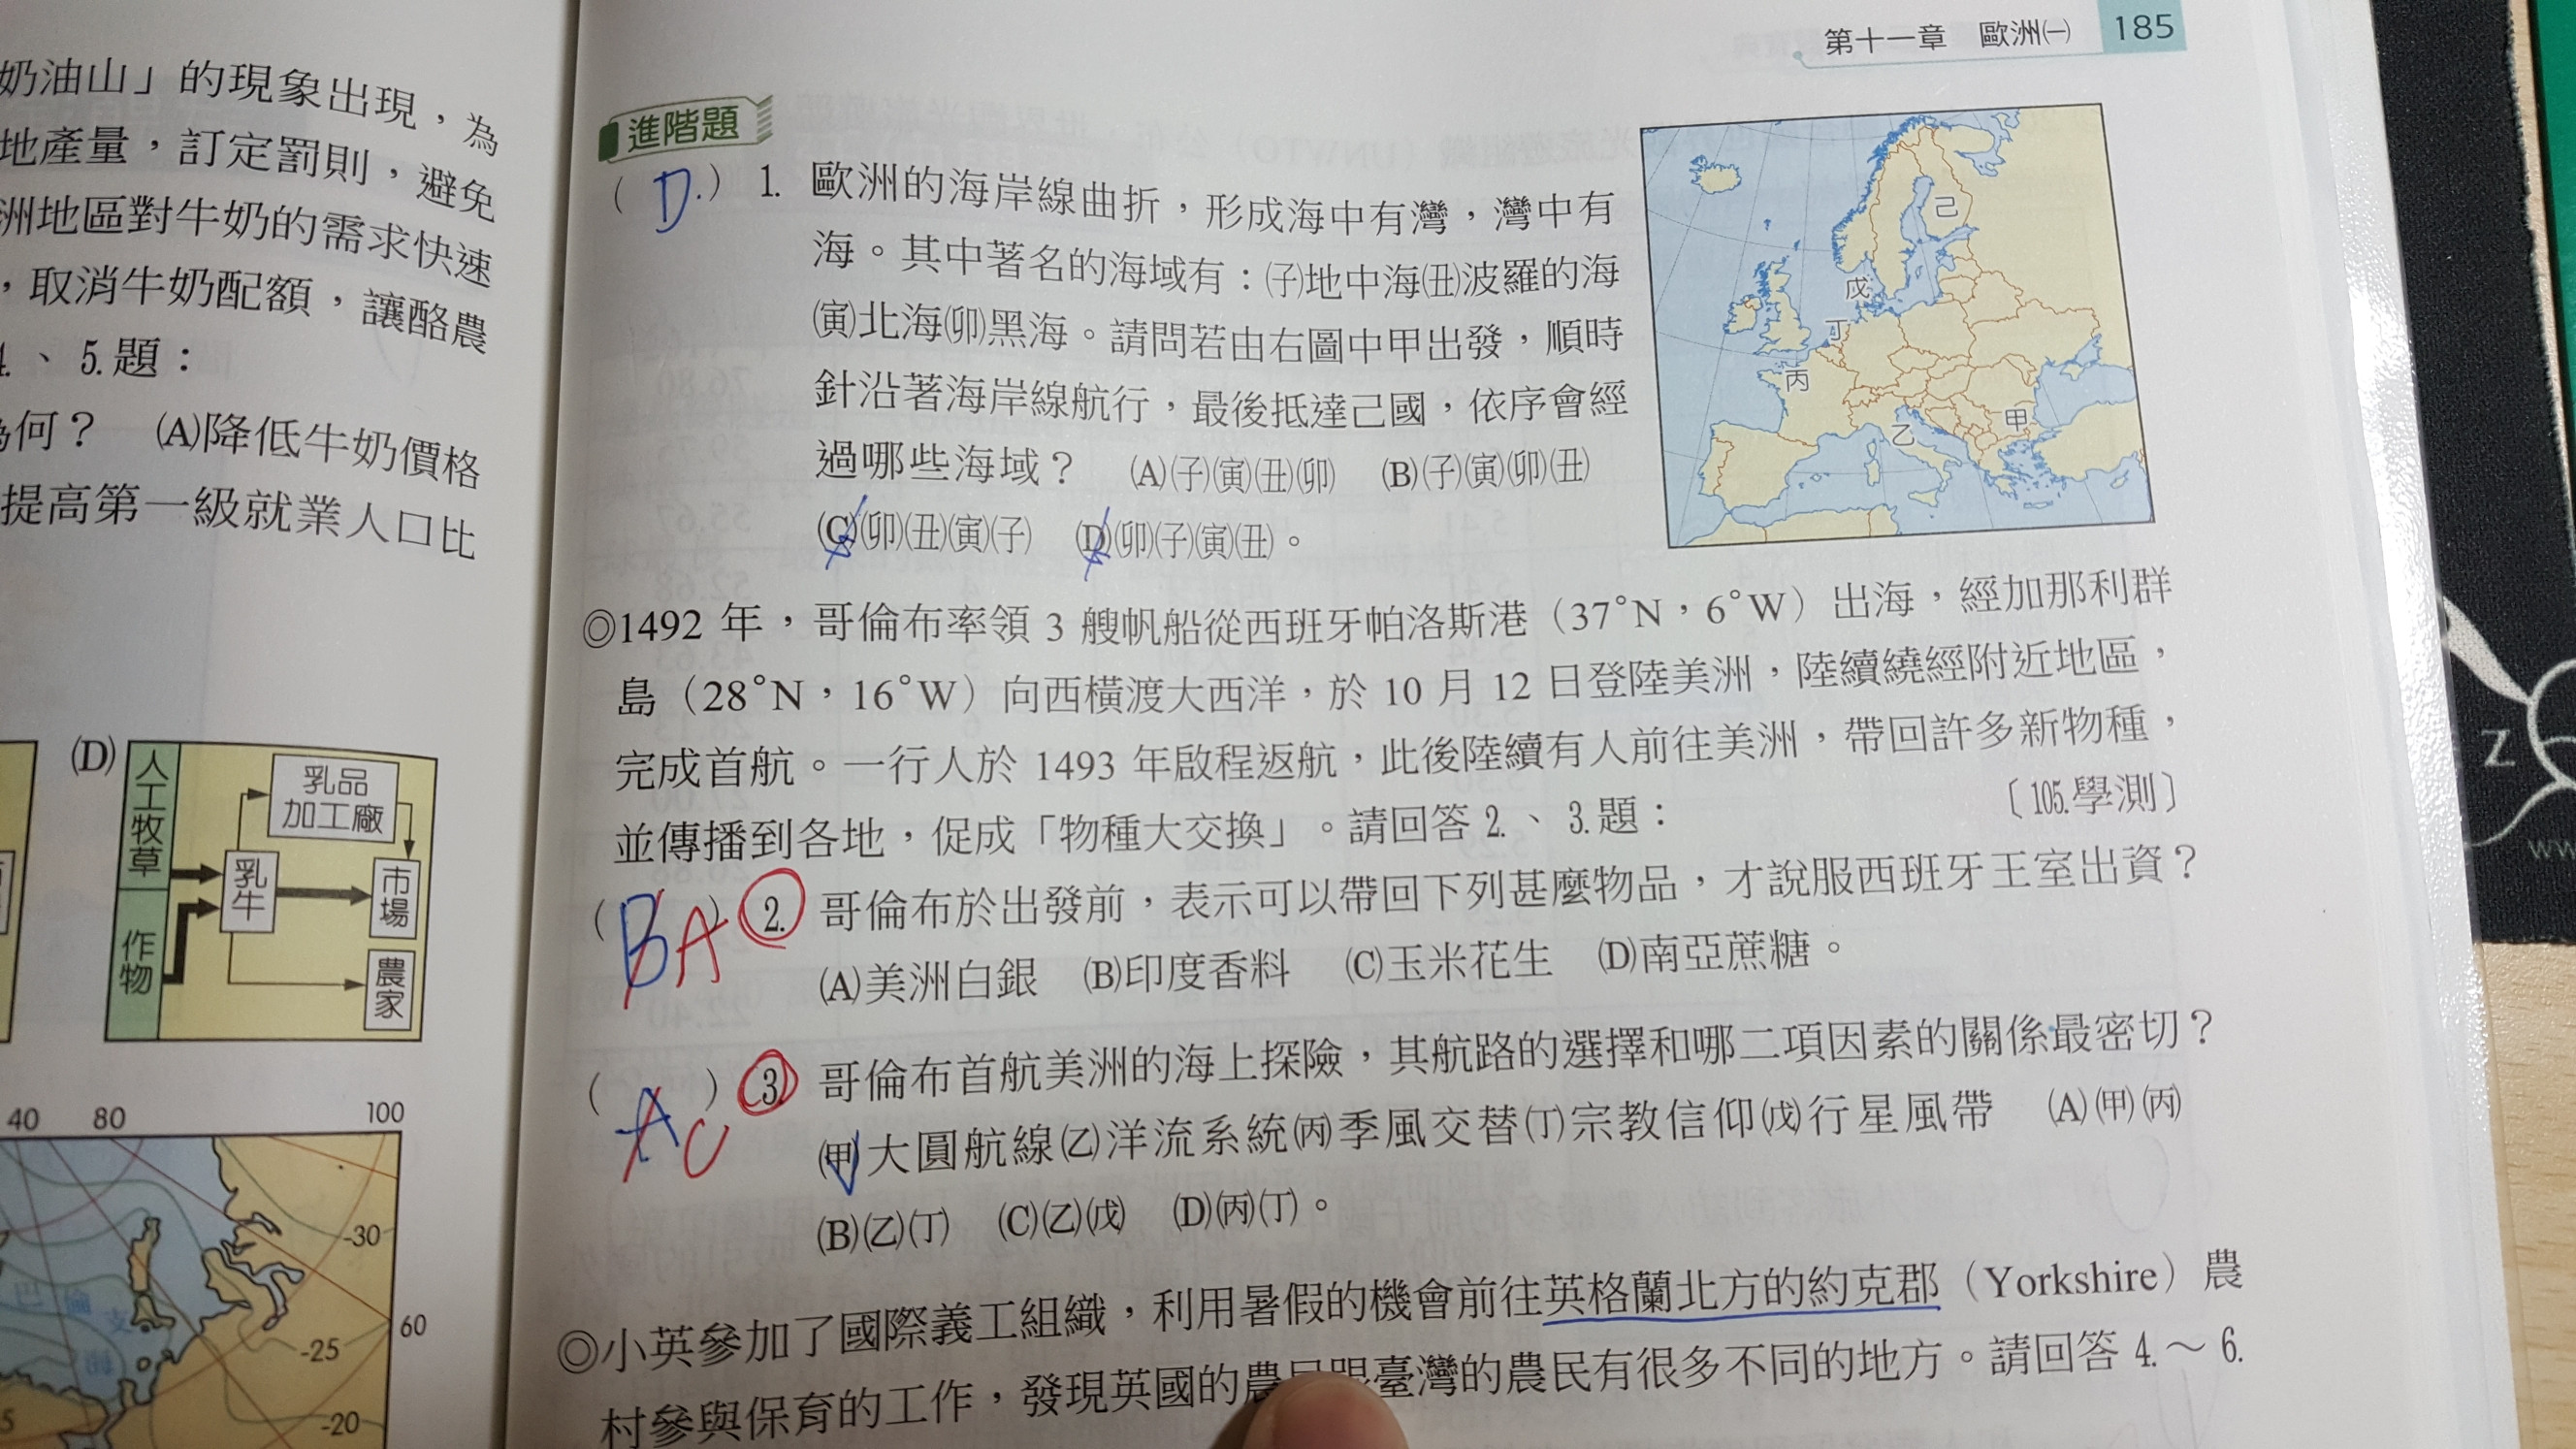 奶油山」的現象出現，為
地產量，訂定罰則，避免
洲地區對牛奶的需求快速
，取消牛奶配額，讓酪農
4.、5.題：
為何？ (A)降低牛奶價格
提高第一級就業人口比
(D)
人工牧草
作物
乳牛
乳品
加工廠
市場
農家
40 80 100
-30
60
-25
-20
第十一章 歐洲㈠ 185
進階題
( D. ) 1. 歐洲的海岸線曲折，形成海中有灣，灣中有
海。其中著名的海域有：(子)地中海(丑)波羅的海
(寅)北海(卯)黑海。請問若由右圖中甲出發，順時
針沿著海岸線航行，最後抵達己國，依序會經
過哪些海域？ (A)(子)(寅)(丑)(卯) (B)(子)(寅)(卯)(丑)
(C)(卯)(丑)(寅)(子) (D)(卯)(子)(寅)(丑)。
己
戊
丁
丙
乙
甲
◎1492 年，哥倫布率領 3 艘帆船從西班牙帕洛斯港（37°N，6°W）出海，經加那利群
島（28°N，16°W）向西橫渡大西洋，於 10 月 12 日登陸美洲，陸續繞經附近地區，
完成首航。一行人於 1493 年啟程返航，此後陸續有人前往美洲，帶回許多新物種，
並傳播到各地，促成「物種大交換」。請回答 2.、3.題： 〔105.學測〕
( B A ) 2. 哥倫布於出發前，表示可以帶回下列甚麼物品，才說服西班牙王室出資？
(A)美洲白銀 (B)印度香料 (C)玉米花生 (D)南亞蔗糖。
( A C ) 3. 哥倫布首航美洲的海上探險，其航路的選擇和哪二項因素的關係最密切？
(甲)大圓航線(乙)洋流系統(丙)季風交替(丁)宗教信仰(戊)行星風帶 (A)(甲)(丙)
(B)(乙)(丁) (C)(乙)(戊) (D)(丙)(丁)。
◎小英參加了國際義工組織，利用暑假的機會前往英格蘭北方的約克郡（Yorkshire）農
村參與保育的工作，發現英國的農民跟臺灣的農民有很多不同的地方。請回答 4.～6.
Z